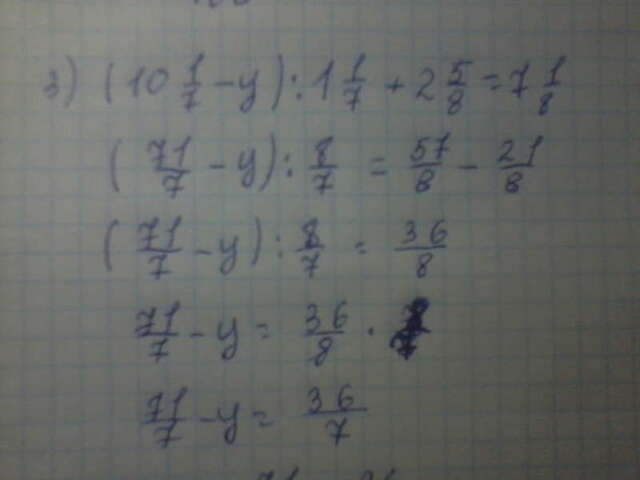 3) (10 1/7 - y) : 1 1/7 + 2 5/8 = 7 1/8
(71/7 - y) : 8/7 = 57/8 - 21/8
(71/7 - y) : 8/7 = 36/8
71/7 - y = 36/8 ·
71/7 - y = 36/7